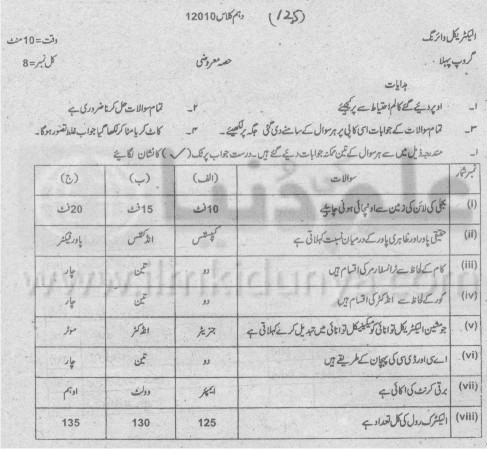 (125) دہم کلاس 12010
الیکٹریکل وائرنگ
وقت=10 منٹ
گروپ پہلا
حصہ معروضی
کل نمبر=8
ہدایات
۱۔ اوپر دیئے گئے کالم احتیاط سے پر کیجئے ۲۔ تمام سوالات حل کرنا ضروری ہے
۳۔ تمام سوالات کے جوابات اسی کاپی پر ہر سوال کے سامنے دی گئی جگہ پر لکھیئے۔ ۴۔ کاٹ کر یا مٹا کر لکھا گیا جواب غلط تصور ہوگا۔
۱۔ مندرجہ ذیل میں سے ہر سوال کے تین ممکنہ جوابات دیئے گئے ہیں۔ درست جواب پر ٹک (✓) کا نشان لگائیے
نمبر شمار سوالات (الف) (ب) (ج)
(i) بجلی کی لائن کی زمین سے اونچائی ہونی چاہیئے 10 فٹ 15 فٹ 20 فٹ
(ii) حقیقی پاور اور ظاہری پاور کے درمیان نسبت کہلاتی ہے کپیسٹنس انڈکٹنس پاور فیکٹر
(iii) کام کے لحاظ سے ٹرانسفارمر کی اقسام ہیں دو تین چار
(iv) کور کے لحاظ سے انڈکٹر کی اقسام ہیں دو تین چار
(v) جو مشین الیکٹریکل توانائی کو مکینیکل توانائی میں تبدیل کرے کہلاتی ہے جنریٹر انڈکٹر موٹر
(vi) اے سی اور ڈی سی کی پہچان کے طریقے ہیں دو تین چار
(vii) برقی کرنٹ کی اکائی ہے ایمپیئر وولٹ اوہم
(viii) الیکٹرک رول کی کل تعداد ہے 125 130 135
علم کی دنیا
www.ilmkidunya.com